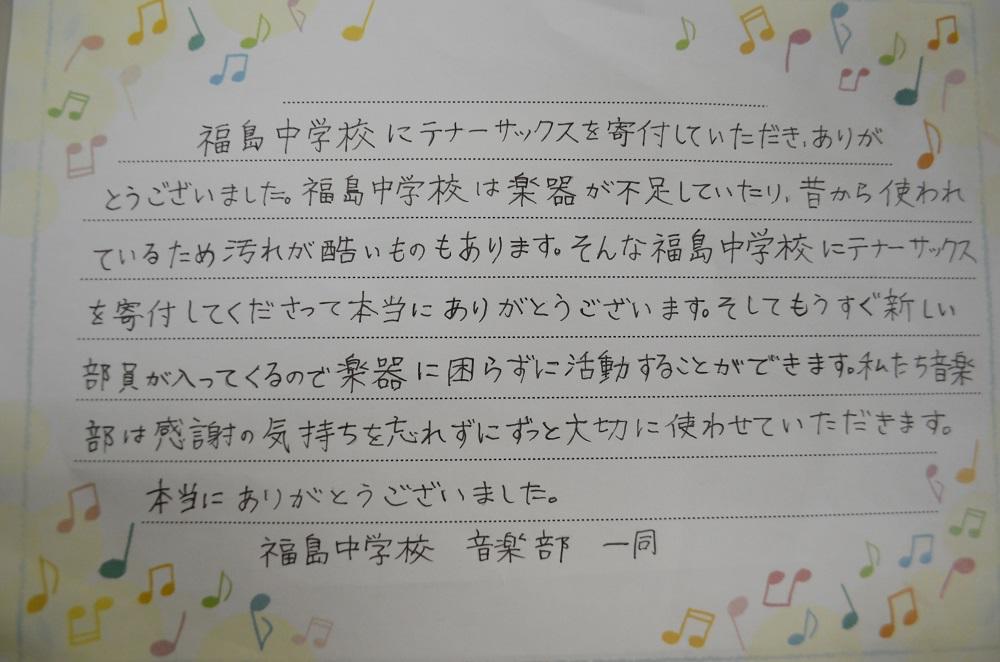 福島中学校にテナーサックスを寄付していただき、ありが
とうございました。福島中学校は楽器が不足していたり、昔から使われ
ているため汚れが酷いものもあります。そんな福島中学校にテナーサックス
を寄付してくださって本当にありがとうございます。そしてもうすぐ新しい
部員が入ってくるので楽器に困らずに活動することができます。私たち音楽
部は感謝の気持ちを忘れずにずっと大切に使わせていただきます。
本当にありがとうございました。
福島中学校 音楽部 一同